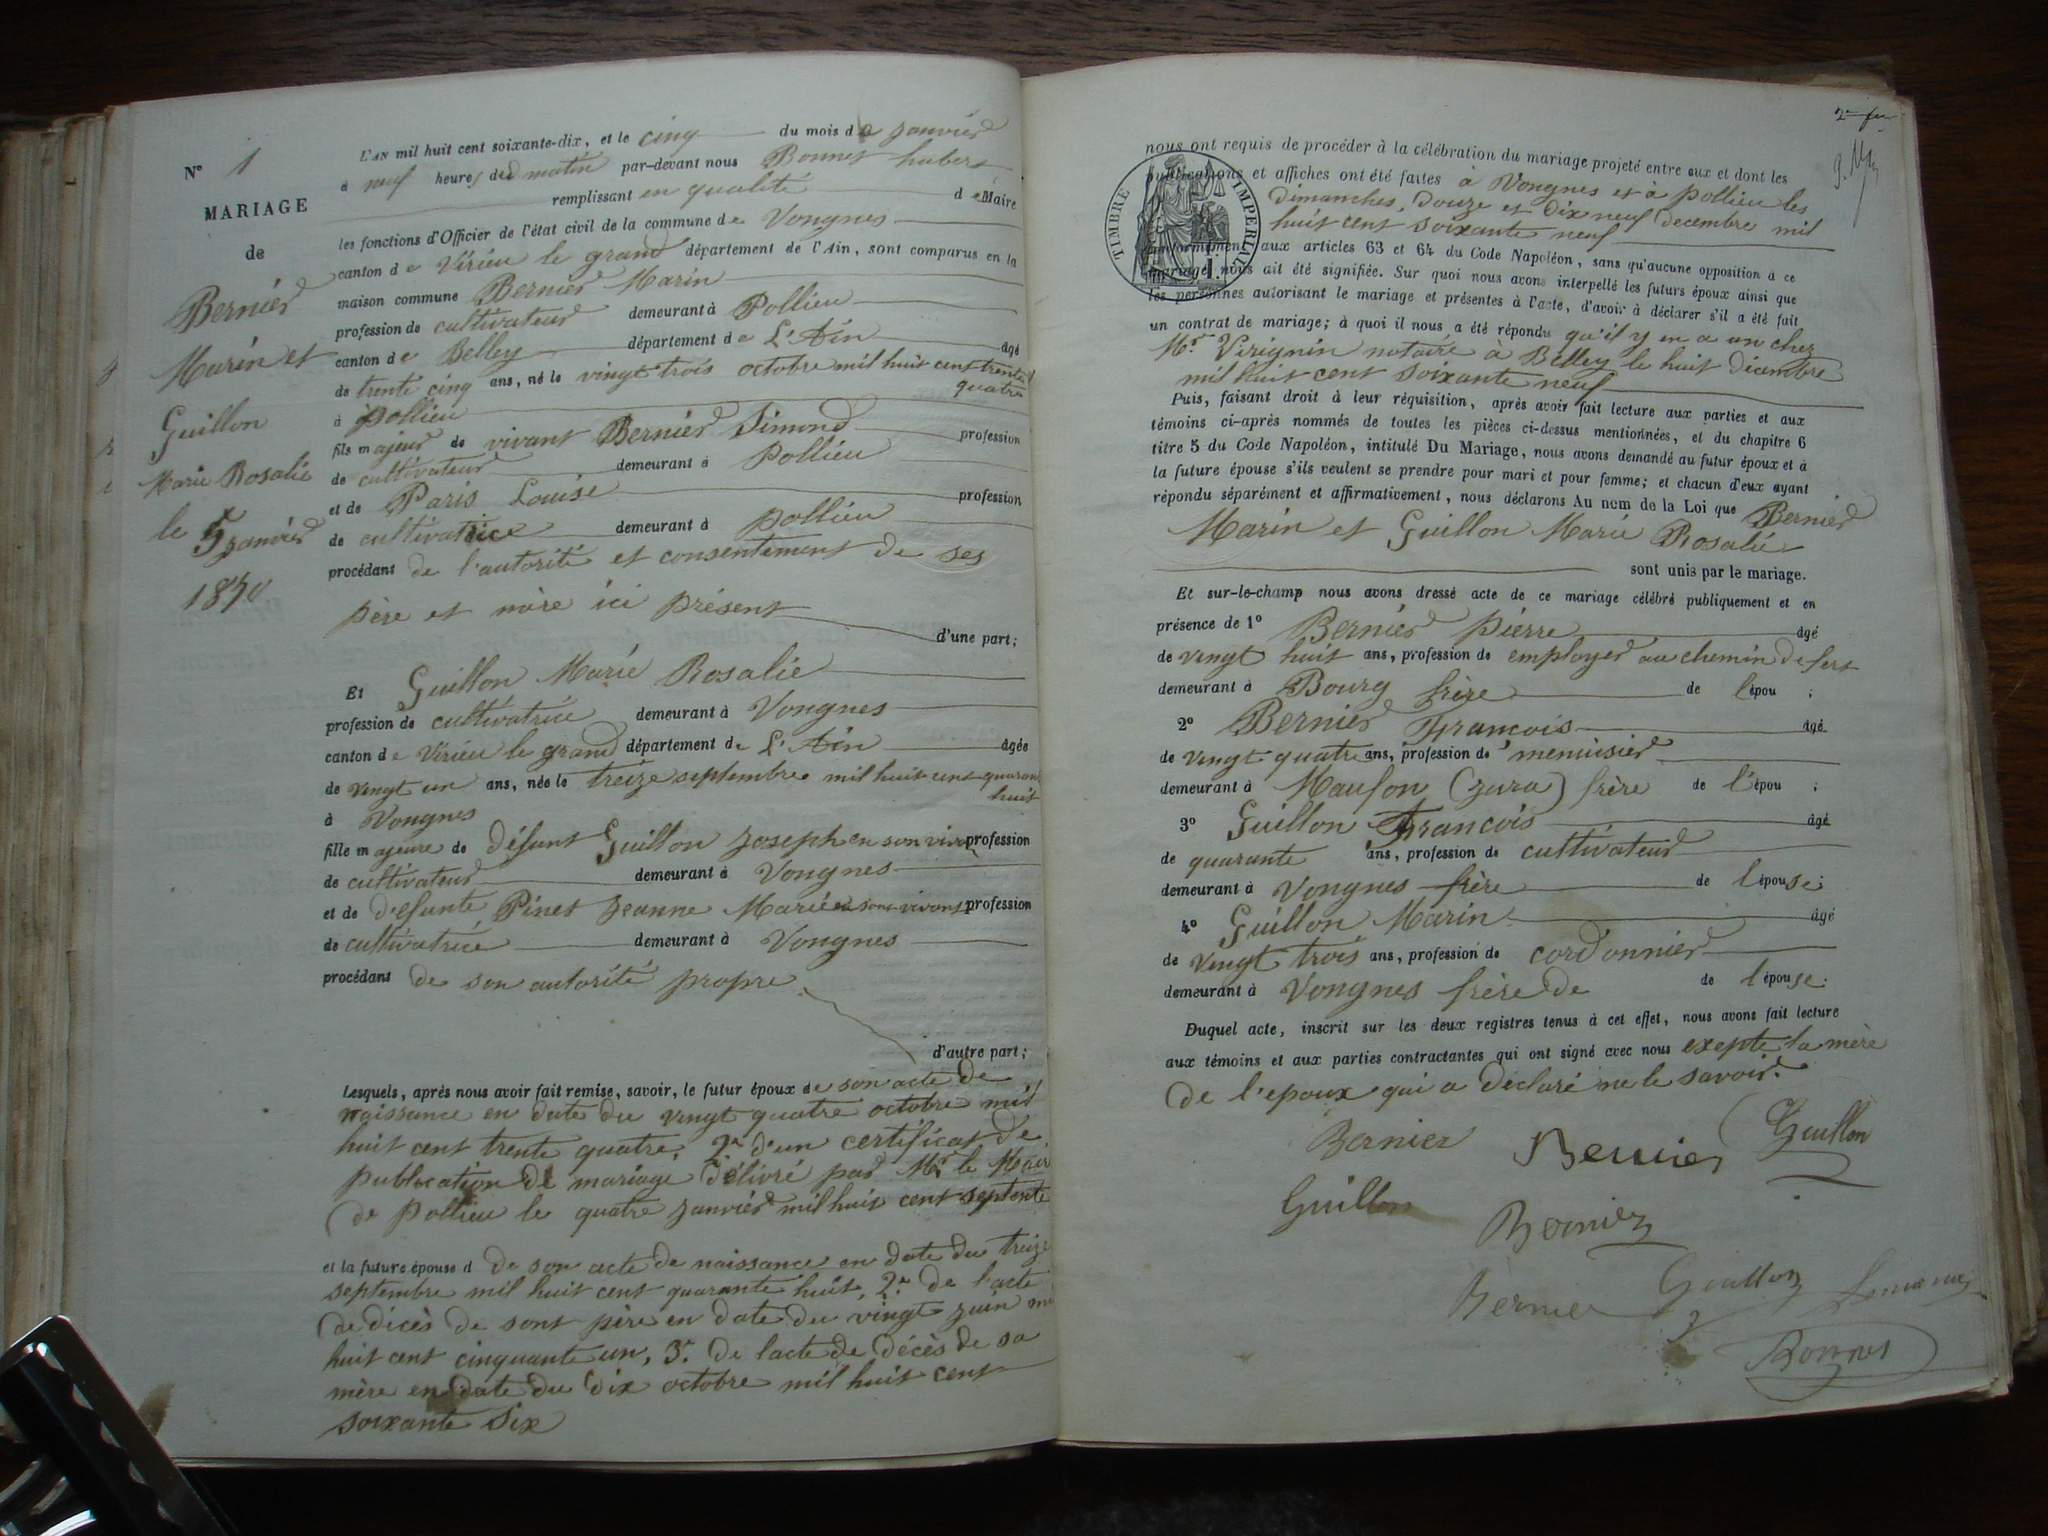 N° 1
MARIAGE
de
Bernier
Marin et
Guillon
Marie Rosalie
le 5 janvier
1870
L'AN mil huit cent soixante-dix, et le cinq du mois de janvier
à neuf heures du matin par-devant nous Bonnet hubert
remplissant en qualité de Maire
les fonctions d'Officier de l'état civil de la commune de Vongnes
canton de Virieu le grand département de l'Ain, sont comparus en la
maison commune Bernier Marin
profession de cultivateur demeurant à Pollieu
canton de Belley département de L'Ain âgé
de trente cinq ans, né le vingt trois octobre mil huit cent trente
quatre
à Pollieu
fils majeur de vivant Bernier Simond profession
de cultivateur demeurant à Pollieu
et de Paris Louise profession
de cultivatrice demeurant à Pollieu
procédant de l'autorité et consentement de ses
père et mère ici présent
d'une part;
Et Guillon Marie Rosalie
profession de cultivatrice demeurant à Vongnes
canton de Virieu le grand département de L'Ain âgée
de vingt un ans, née le treize septembre mil huit cent quarante
huit
à Vongnes
fille majeure de défunt Guillon Joseph en son vivant profession
de cultivateur demeurant à Vongnes
et de défunte Pinet Jeanne Marie en son vivant profession
de cultivatrice demeurant à Vongnes
procédant de son autorité propre
d'autre part;
Lesquels, après nous avoir fait remise, savoir, le futur époux de son acte de
naissance en date du vingt quatre octobre mil
huit cent trente quatre, 2° d'un certificat de
publication de mariage délivré par Mr le Maire
de Pollieu le quatre janvier mil huit cent septente
et la future épouse d de son acte de naissance en date du treize
septembre mil huit cent quarante huit, 2° de l'acte
de dicès de sont père en date du vingt juin mil
huit cent cinquante un, 3° de lacte de décès de sa
mère en date du dix octobre mil huit cent
soixante six
2me
nous ont requis de procéder à la célébration du mariage projeté entre eux et dont les
publications et affiches ont été faites à Vongnes et à Pollieu les
dimanches, douze et dix neuf decembre mil
huit cent soixante neuf
TIMBRE IMPERIAL
conformément aux articles 63 et 64 du Code Napoléon, sans qu'aucune opposition à ce
mariage nous ait été signifiée. Sur quoi nous avons interpellé les futurs époux ainsi que
les personnes autorisant le mariage et présentes à l'acte, d'avoir à déclarer s'il a été fait
un contrat de mariage; à quoi il nous a été répondu qu'il y en a un chez
Mr Virignin notaire à Belley le huit décembre
mil huit cent soixante neuf
Puis, faisant droit à leur réquisition, après avoir fait lecture aux parties et aux
témoins ci-après nommés de toutes les pièces ci-dessus mentionnées, et du chapitre 6
titre 5 du Code Napoléon, intitulé Du Mariage, nous avons demandé au futur époux et à
la future épouse s'ils veulent se prendre pour mari et pour femme; et chacun d'eux ayant
répondu séparément et affirmativement, nous déclarons Au nom de la Loi que Bernier
Marin et Guillon Marie Rosalie
sont unis par le mariage.
Et sur-le-champ nous avons dressé acte de ce mariage célébré publiquement et en
présence de 1° Bernier Pierre âgé
de vingt huit ans, profession de employer au chemin de fert
demeurant à Bourg frère de l'épou ;
2° Bernier François âgé
de vingt quatre ans, profession de menuisier
demeurant à Maufon (jura) frère de l'épou ;
3° Guillon François âgé
de quarante ans, profession de cultivateur
demeurant à Vongnes frère de l'épouse;
4° Guillon Marin âgé
de vingt trois ans, profession de cordonnier
demeurant à Vongnes frère de de l'épouse.
Duquel acte, inscrit sur les deux registres tenus à cet effet, nous avons fait lecture
aux témoins et aux parties contractantes qui ont signé avec nous exepté la mère
de l'epoux qui a déclaré ne le savoir.
Bernier Bernier Guillon
Guillon Bernier
Bernier Guillon
Bonnet